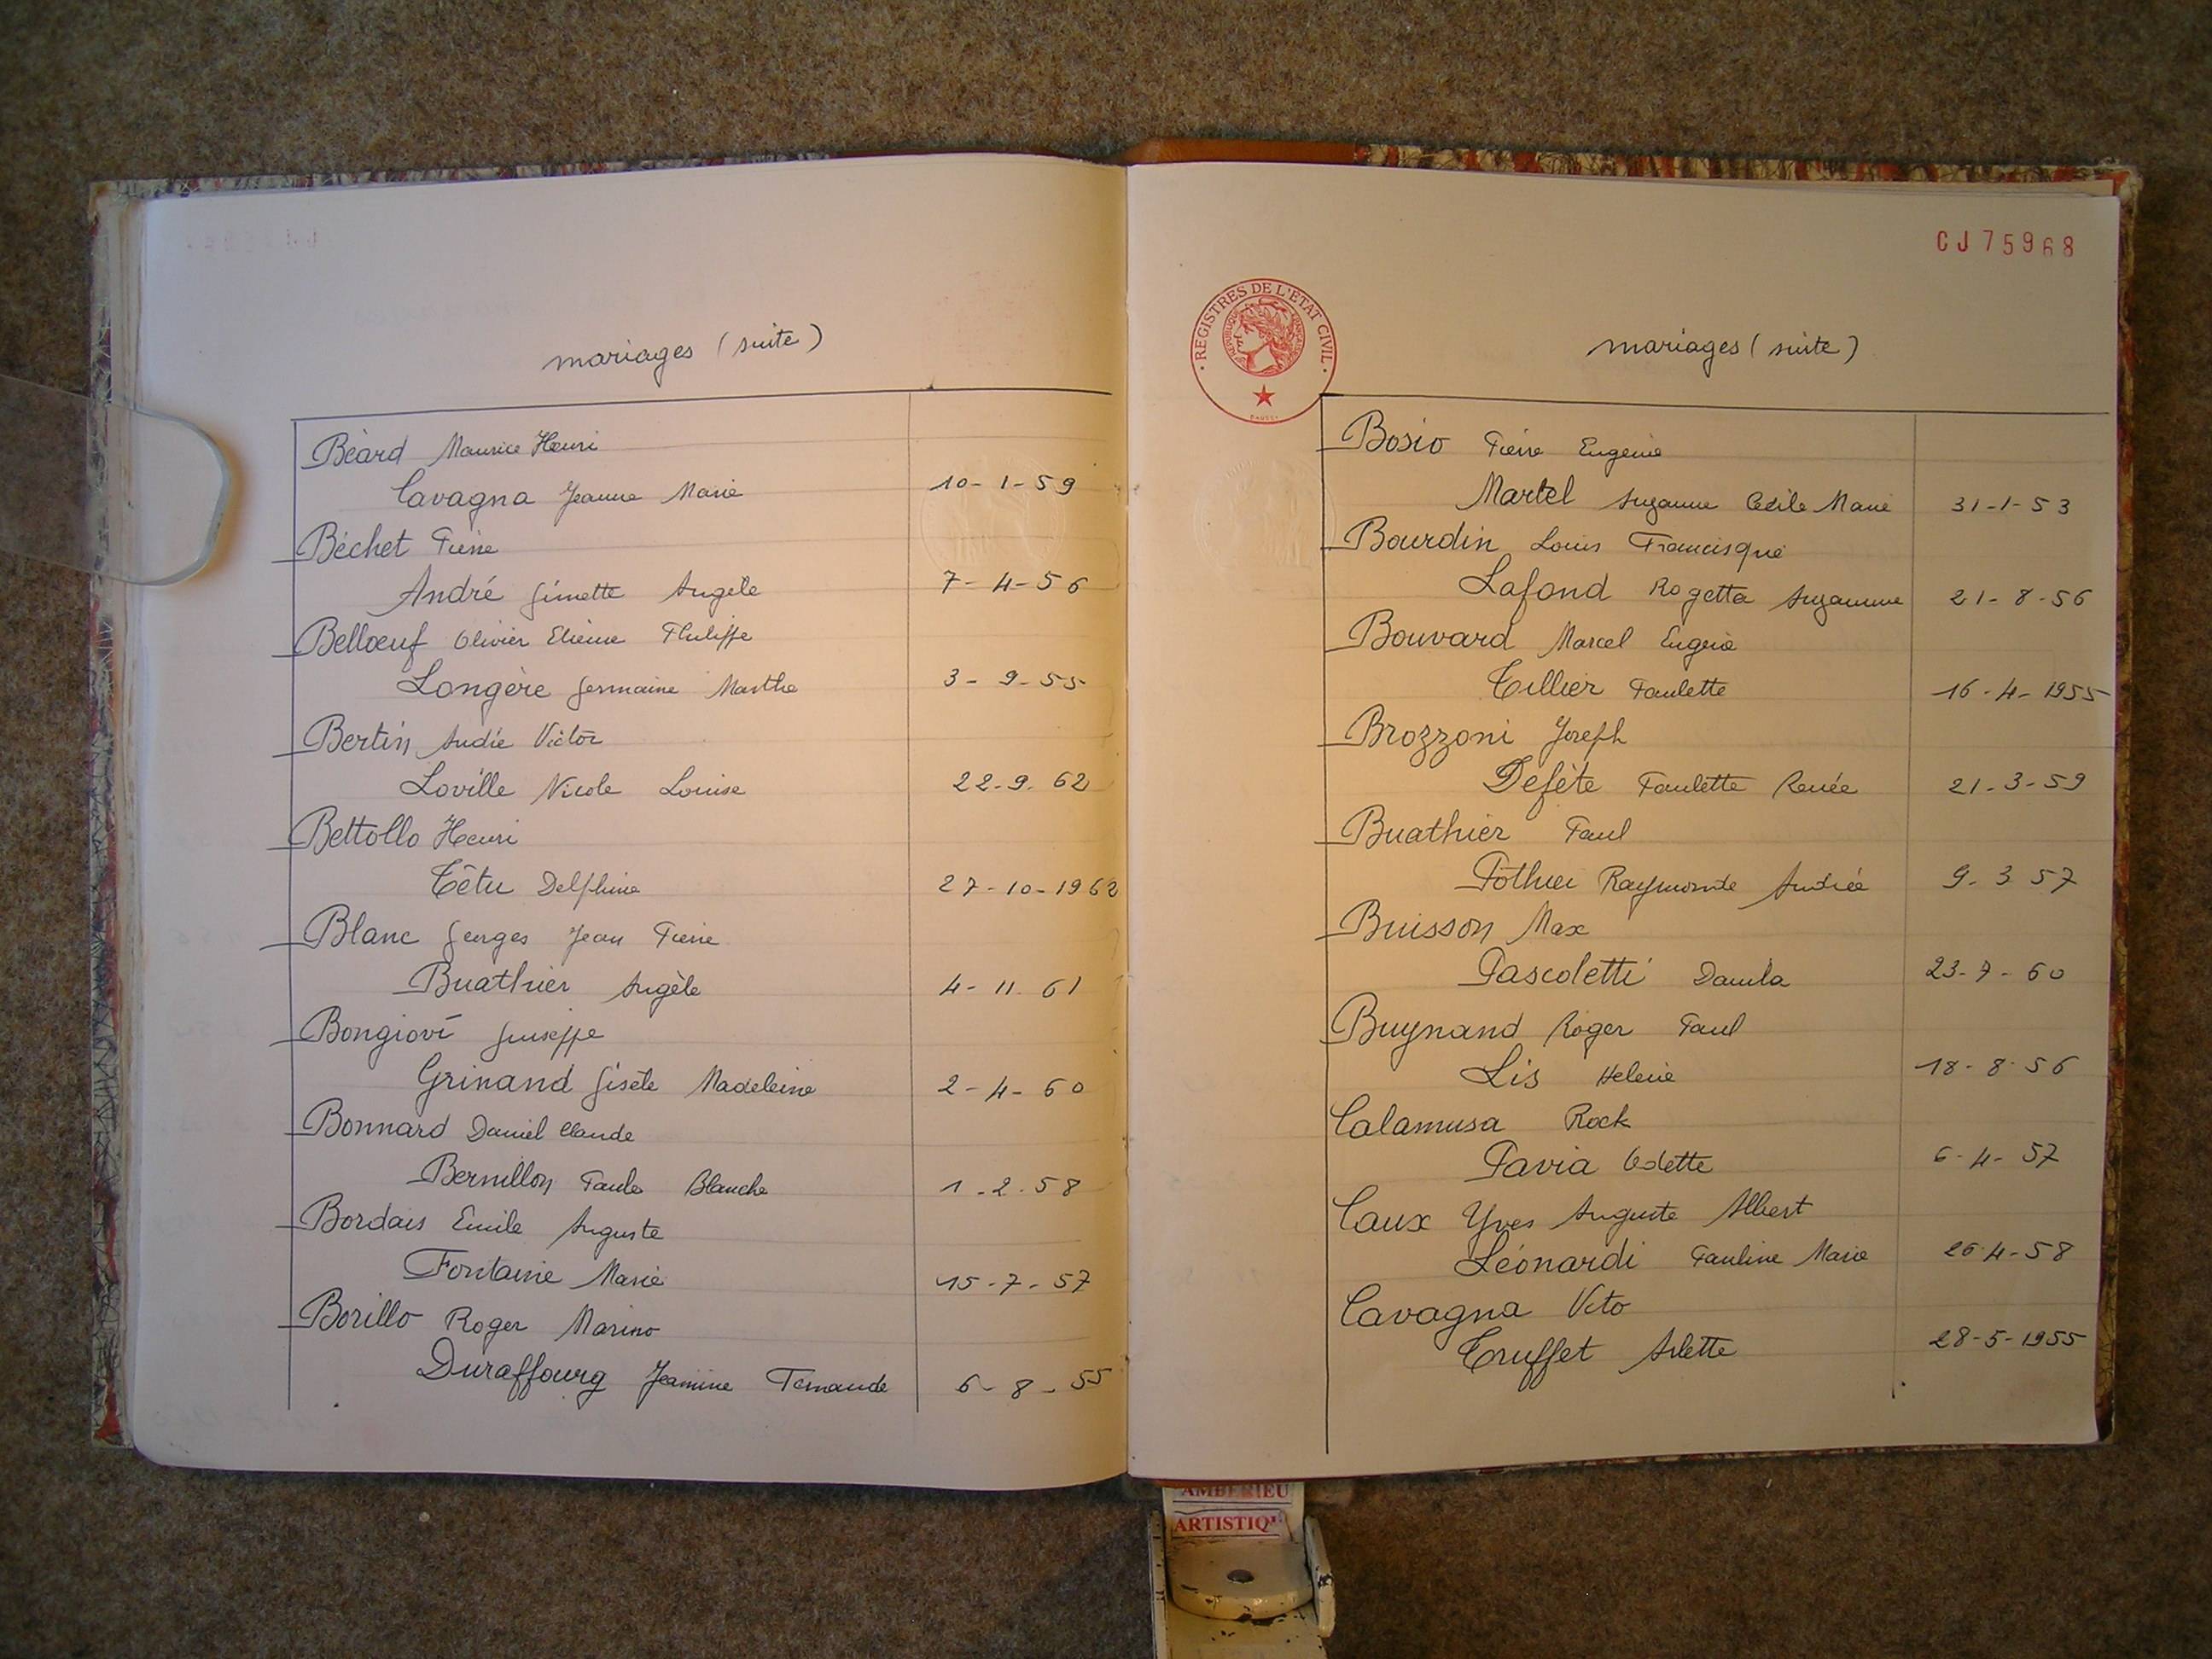 mariages (suite)
Béard Maurice Henri
Cavagna Jeanne Marie 10-1-59
Béchet Pierre
André Ginette Angèle 7-4-56
Bellœuf Olivier Etienne Philippe
Longère Germaine Marthe 3-9-55
Bertin André Victor
Loville Nicole Louise 22-9-62
Bettollo Henri
Têtu Delphine 27-10-1962
Blanc Georges Jean Pierre
Buathier Angèle 4-11-61
Bongiovi Guiseppe
Grinand Gisèle Madeleine 2-4-60
Bonnard Daniel Claude
Bernillon Paule Blanche 1-2-58
Bordais Emile Auguste
Fontaine Marie 15-7-57
Borillo Roger Marino
Duraffourg Jeannine Fernande 6-8-55
CJ75968
REGISTRES DE L'ETAT CIVIL
mariages (suite)
Bosio Pierre Eugène
Martel Suzanne Cécile Marie 31-1-53
Bourdin Louis Francisque
Lafond Rogetta Suzanne 21-8-56
Bouvard Marcel Eugène
Tillier Paulette 16-4-1955
Brozzoni Joseph
Defète Paulette Renée 21-3-59
Buathier Paul
Pothier Raymonde Andrée 9-3 57
Buisson Max
Pascoletti Danila 23-7-60
Buynand Roger Paul
Lis Helene 18-8-56
Calamusa Rock
Pavia Odette 6-4-57
Caux Yves Auguste Albert
Léonardi Pauline Marie 26-4-58
Cavagna Vito
Truffet Arlette 28-5-1955
AMBERIEU
ARTISTIQ